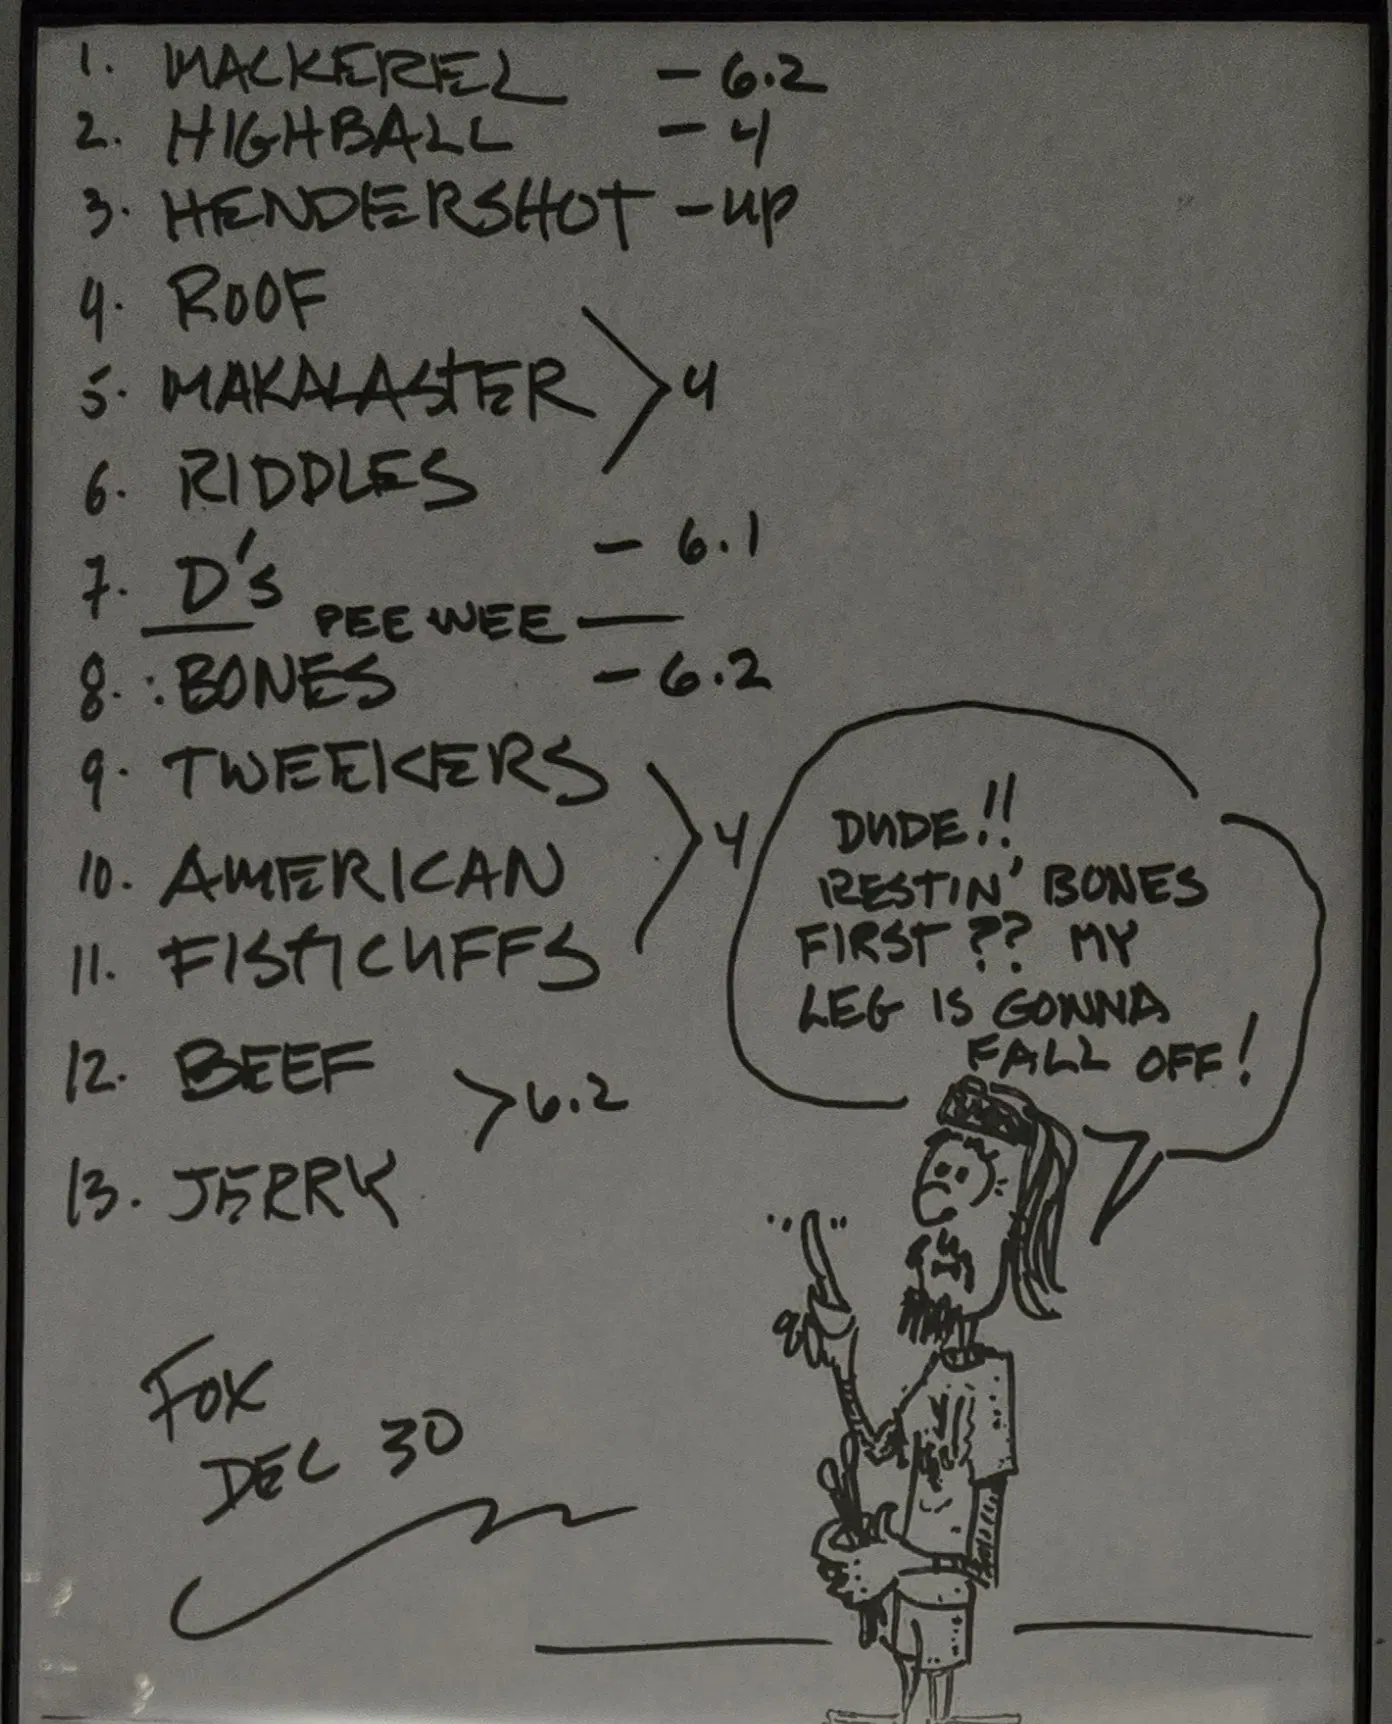 1. MACKEREL - 6.2
2. HIGHBALL - 4
3. HENDERSHOT - up
4. ROOF
5. MAKALASTER > 4
6. RIDDLES
7. D's - 6.1
PEE WEE
8. : BONES - 6.2
9. TWEEKERS
10. AMERICAN > 4
11. FISTICUFFS
12. BEEF > 6.2
13. JERRY
FOX
DEC 30
DUDE!!
RESTIN' BONES
FIRST ?? MY
LEG IS GONNA
FALL OFF!